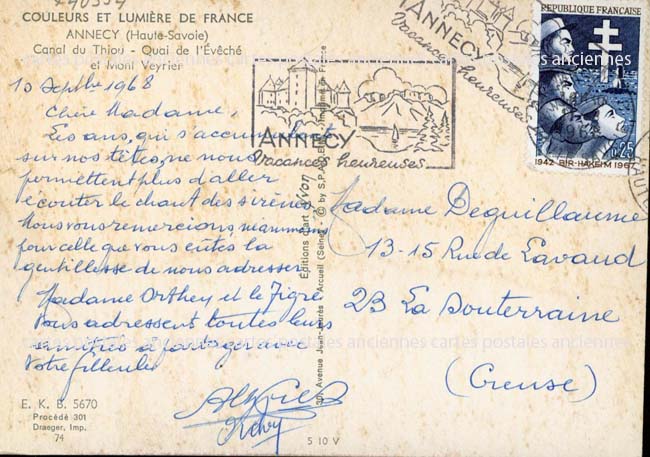 COULEURS ET LUMIÈRE DE FRANCE
ANNECY (Haute-Savoie)
Canal du Thiou - Quai de l'Évêché
et Mont Veyrier
10 Septbre 1968
Chère Madame,
Les ans, qui s'accumulent
sur nos têtes, ne nous
permettent plus d'aller
écouter le chant des sirènes
Nous vous remercions, néanmoins
pour celle que vous eûtes la
gentillesse de nous adresser
Madame Orthey et le Tigre
vous adressent toutes leurs
amitiés à partager avec
votre filleule
E. K. B. 5670
Procédé 301
Draeger, Imp.
74
5 10 V
Éditions d'art Yvon
30, Avenue Jean-Jaurès - Arcueil (Seine)
© by S.P.A.D.E.M.
France
ANNECY
Vacances heureuses
ANNECY
Vacances heureuses
RÉPUBLIQUE FRANÇAISE
0,25
1942 BIR-HAKEIM 1967
Madame Deguillaume
13-15 Rue de Lavaud
23 La Souterraine
(Creuse)
cartes postales anciennes cartes postales anciennes